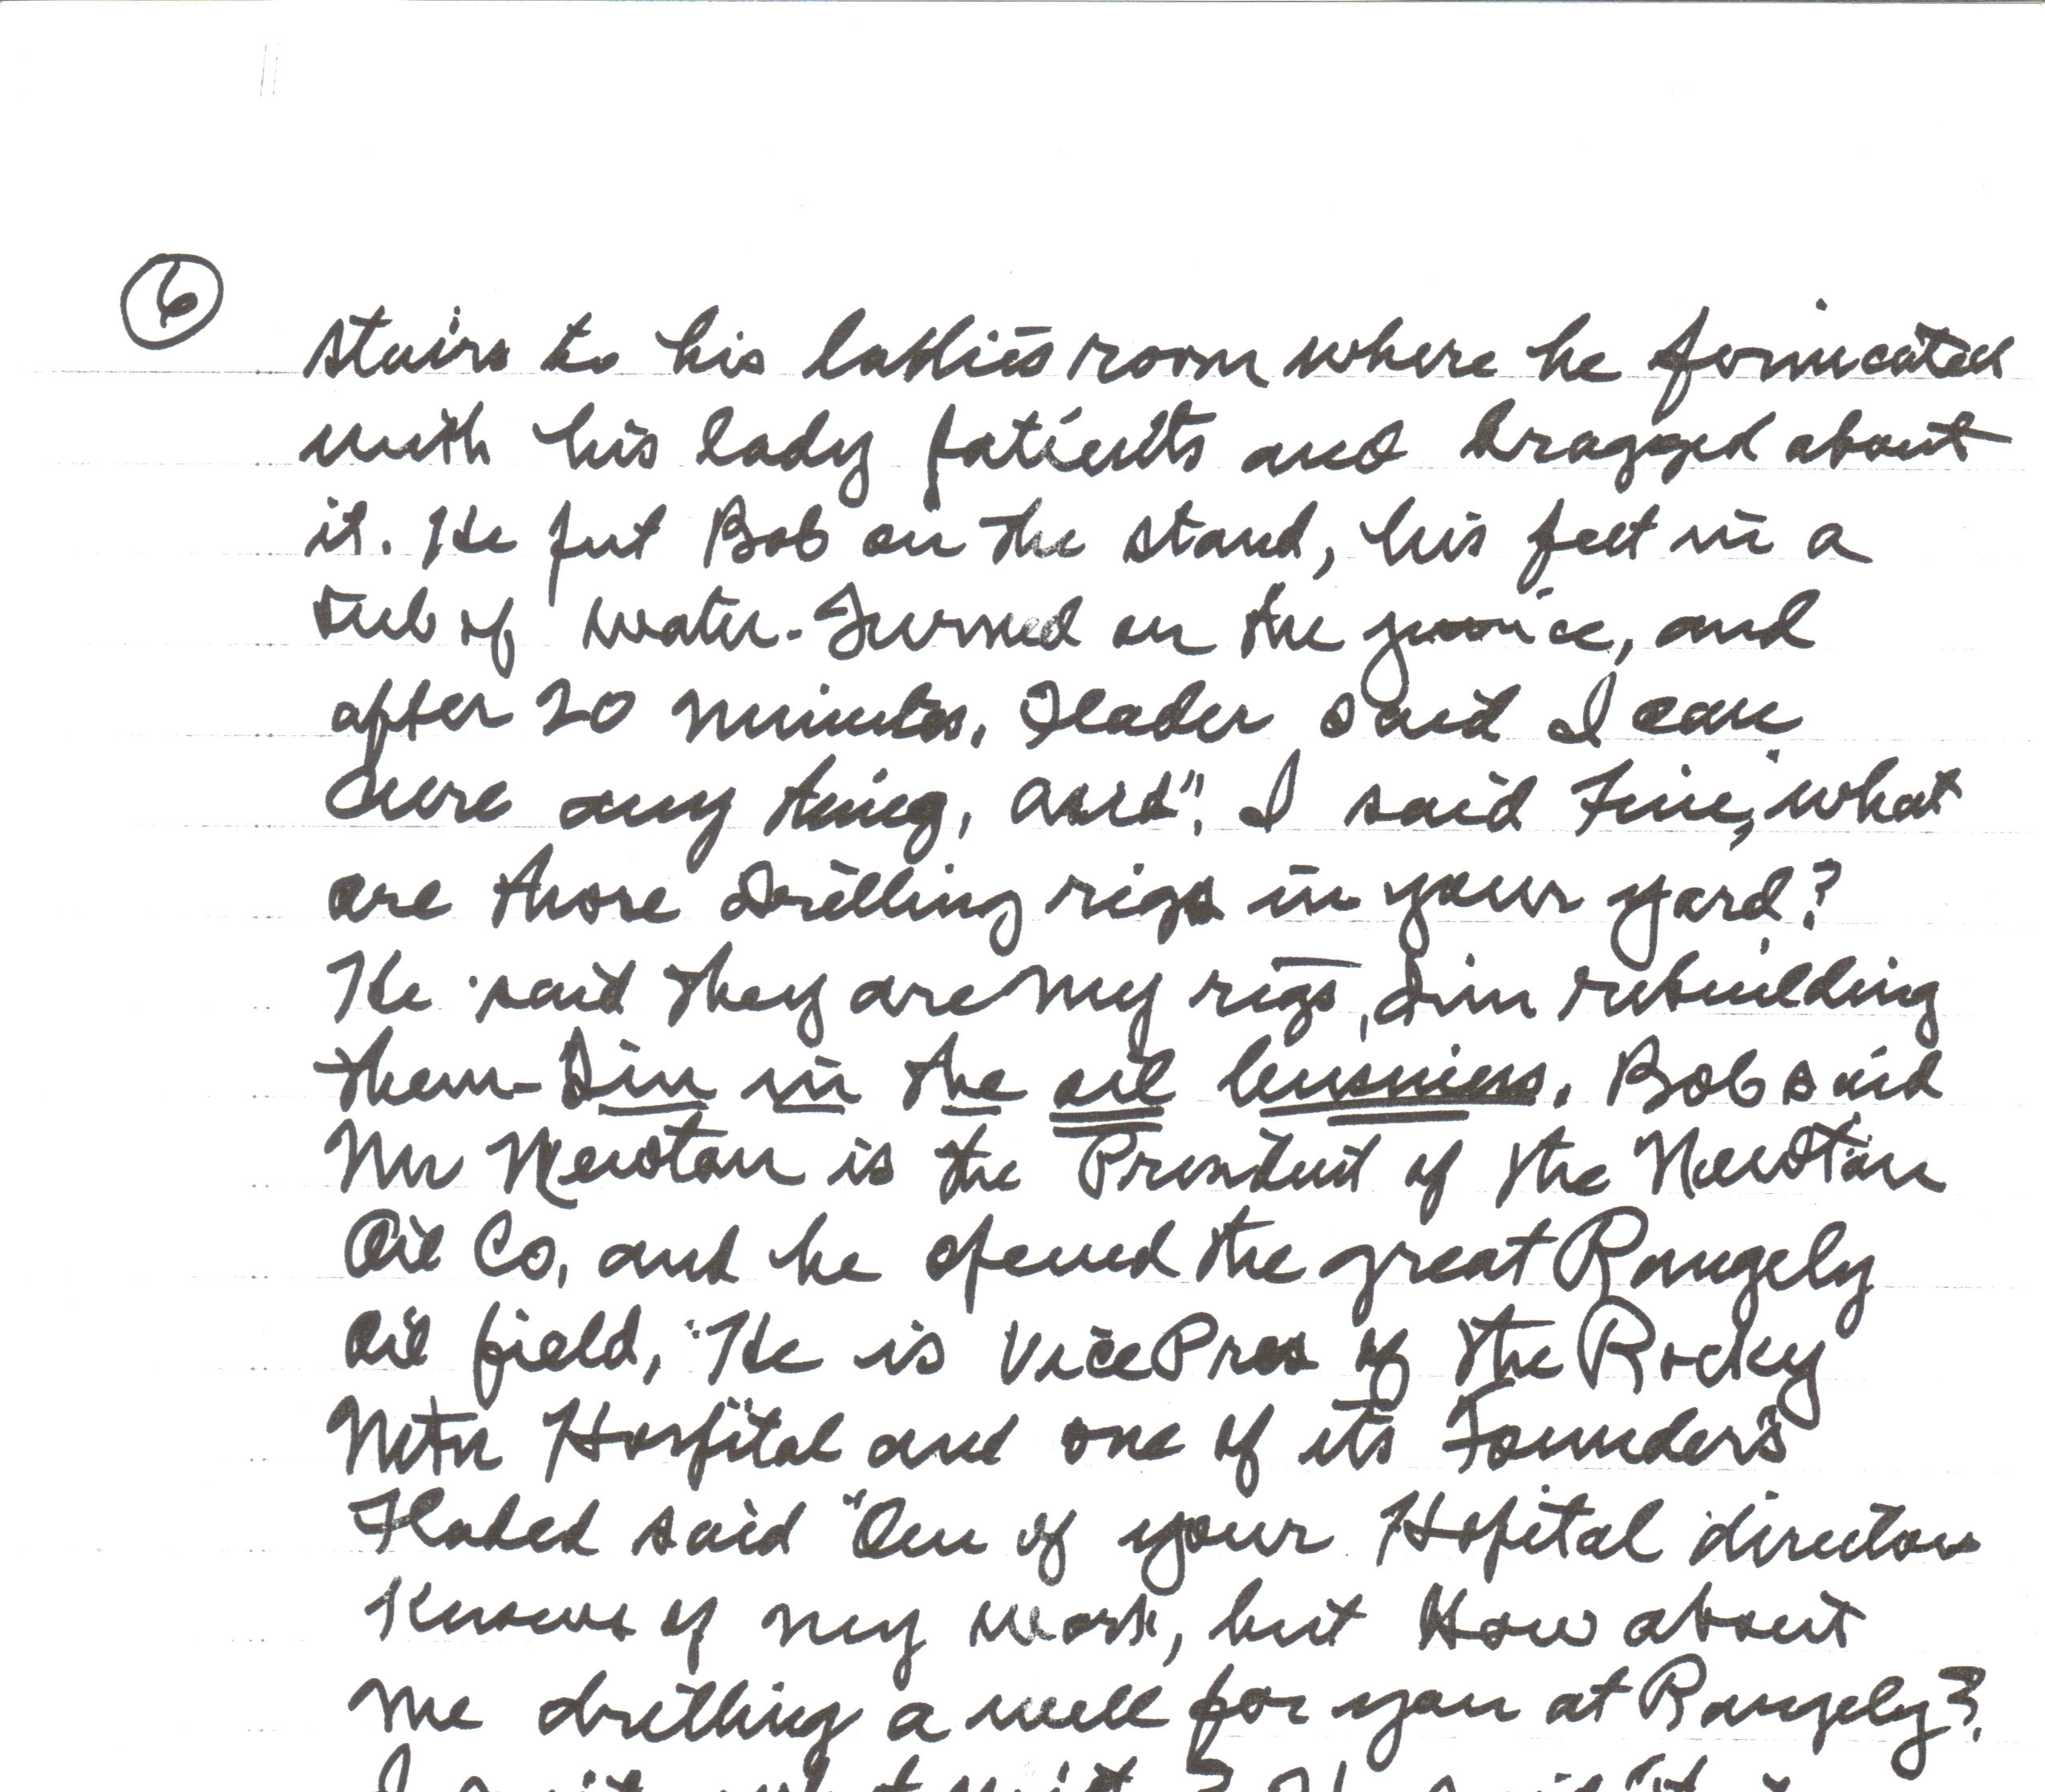 ⑥
stairs to his ladies room where he fornicated
with his lady patients and bragged about
it. He put Bob on the stand, his feet in a
tub of water. Turned on the juice, and
after 20 minutes, Flader said I can
cure any thing, I said Fine, what
are those drilling rigs in your yard?
He said they are my rigs, I'm rebuilding
them - I'm in the oil business. Bob said
Mr Newton is the President of the Newton
Oil Co, and he opened the great Rangely
oil field, He is Vice Pres of the Rocky
Mtn Hospital and one of its Founder's
said "One of your Hopital directors
Knows of my work, but How about
me drilling a well for you at Rangely?